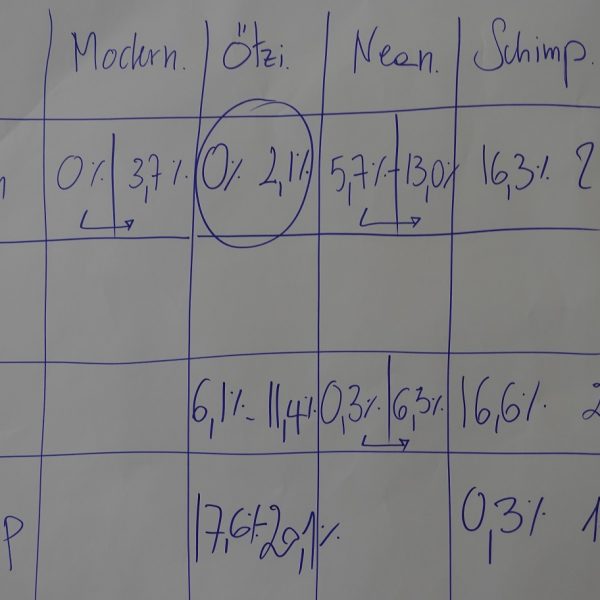 Modern. Ötzi. Nean. Schimp.
n 0% 3,7% 0% 2,1% 5,7% - 13,0% 16,3% 2
6,1% - 11,4% 0,3% 6,3% 16,6% 2
P 17,6% - 20,1% 0,3% 1